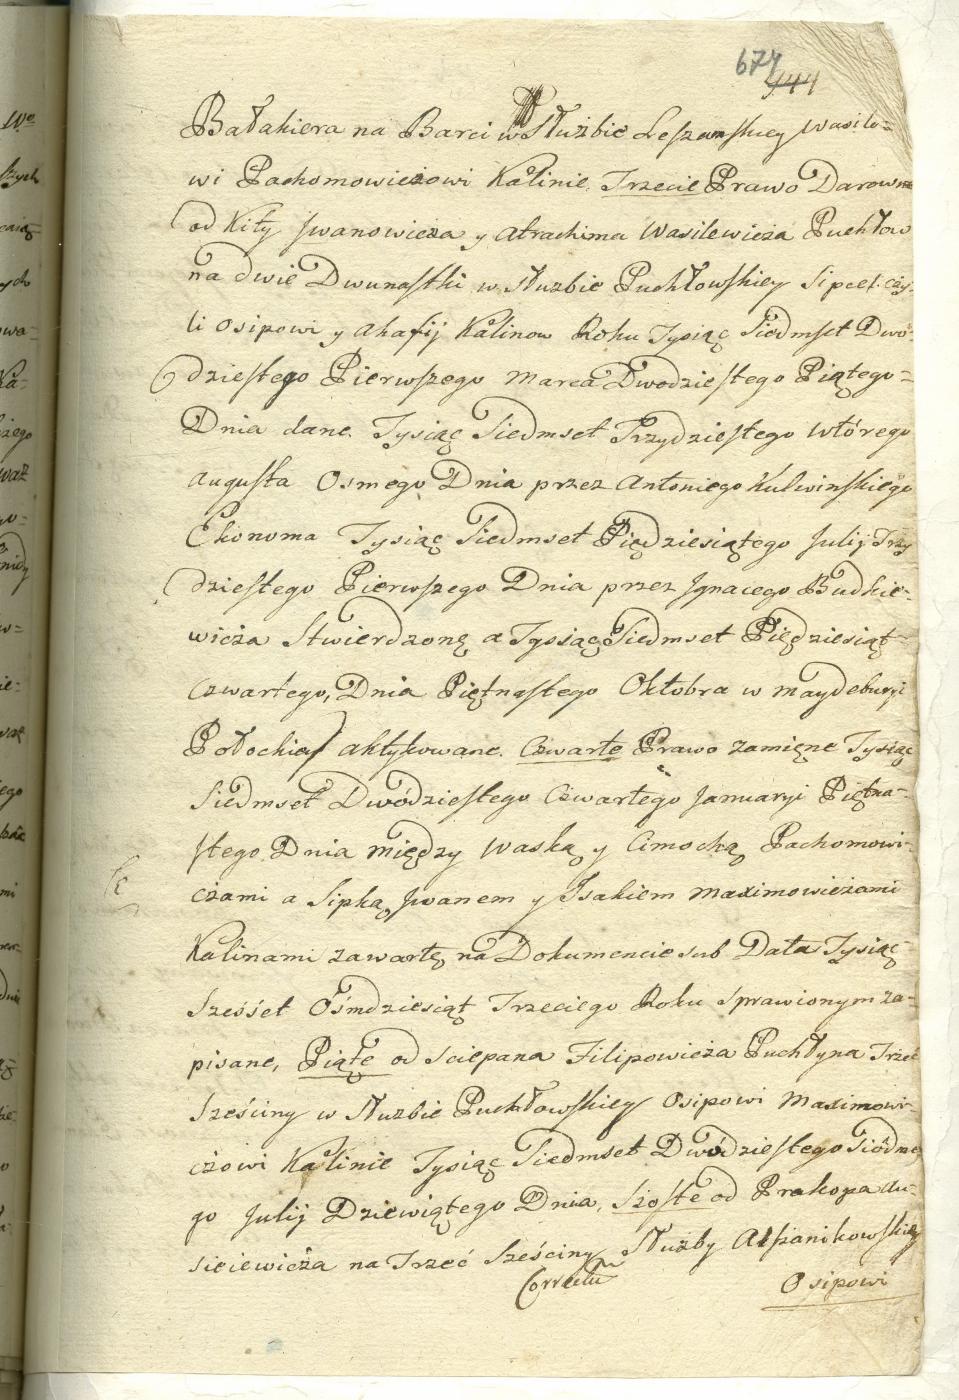 674
444
Bałakiera na Barci w Służbie Leszanskiey Wasilo=
wi Pachomowiczowi Kalinie. Trzecie Prawo Darowne
od Kiły Jwanowicza y Atrachima Wasilewicza Puchłow
na dwie Dwunastki w Służbie Puchłowskiey Sipce czy=
li Osipowi y Ahafij Kalinow Roku Tysiąc Siedmset Dwó=
dziestego Pierwszego Marca Dwodziestego Piątego=
Dnia dane. Tysiąc Siedmset Trzydziestego wtórego
Augusta Osmego Dnia przez Antoniego Kulwinskiego
Ekonoma Tysiąc Siedmset Pięдziesiątego Julij Trzy
dziestego Pierwszego Dnia przez Jgnacego Budkie=
wicza Stwierdzonę, a Tysiąc Siedmset Piędziesiąt=
Czwartego, Dnia Piętnastego Oktobra w Maydeburyi
Połockiey aktykowane. Czwarte Prawo zamięne Tysiąc
Siedmset Dwódziestego Czwartego Januaryi Piętna=
stego Dnia między Waską y Cimochą Pachomowi=
czami a Sipką Jwanem y Jsakiem Maximowiczami
Kalinami zawartę, na Dokumencie sub Data Tysiąc
Sześset Ośmdziesiąt Trzeciego Roku Sprawionym za=
pisane, Piąte od Sciepana Filipowicza Puchłyna Trzeć
Sześciny w Służbie Puchłowskiey Osipowi Maximowi=
czowi Kalinie Tysiąc Siedmset Dwódziestego Siódme
go Julij Dziewiątego Dnia, Szoste od Prakopa Au=
siciewicza na Trzeć Sześciny Służby Alszanikowskiey
Correctu
Osipowi